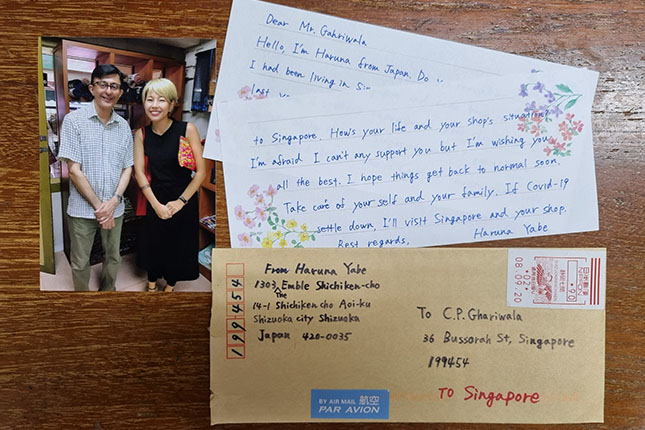 Dear Mr. Gahriwala
Hello, I'm Haruna from Japan. Do
I had been living in
last
to Singapore. How's your life and your shop's situation?
I'm afraid I can't any support you but I'm wishing you
all the best. I hope things get back to normal soon.
Take care of your self and your family. If Covid-19
settle down, I'll visit Singapore and your shop.
Best regards, Haruna Yabe
From Haruna Yabe
1303, Emble Shichiken-cho
The
14-1 Shichiken cho Aoi-ku
Shizuoka city Shizuoka
Japan 420-0035
199454
To C.P. Ghariwala
36 Bussorah St, Singapore
199454
TO Singapore
BY AIR MAIL 航空
PAR AVION
日本郵便
NIPPON
90
08.09.20